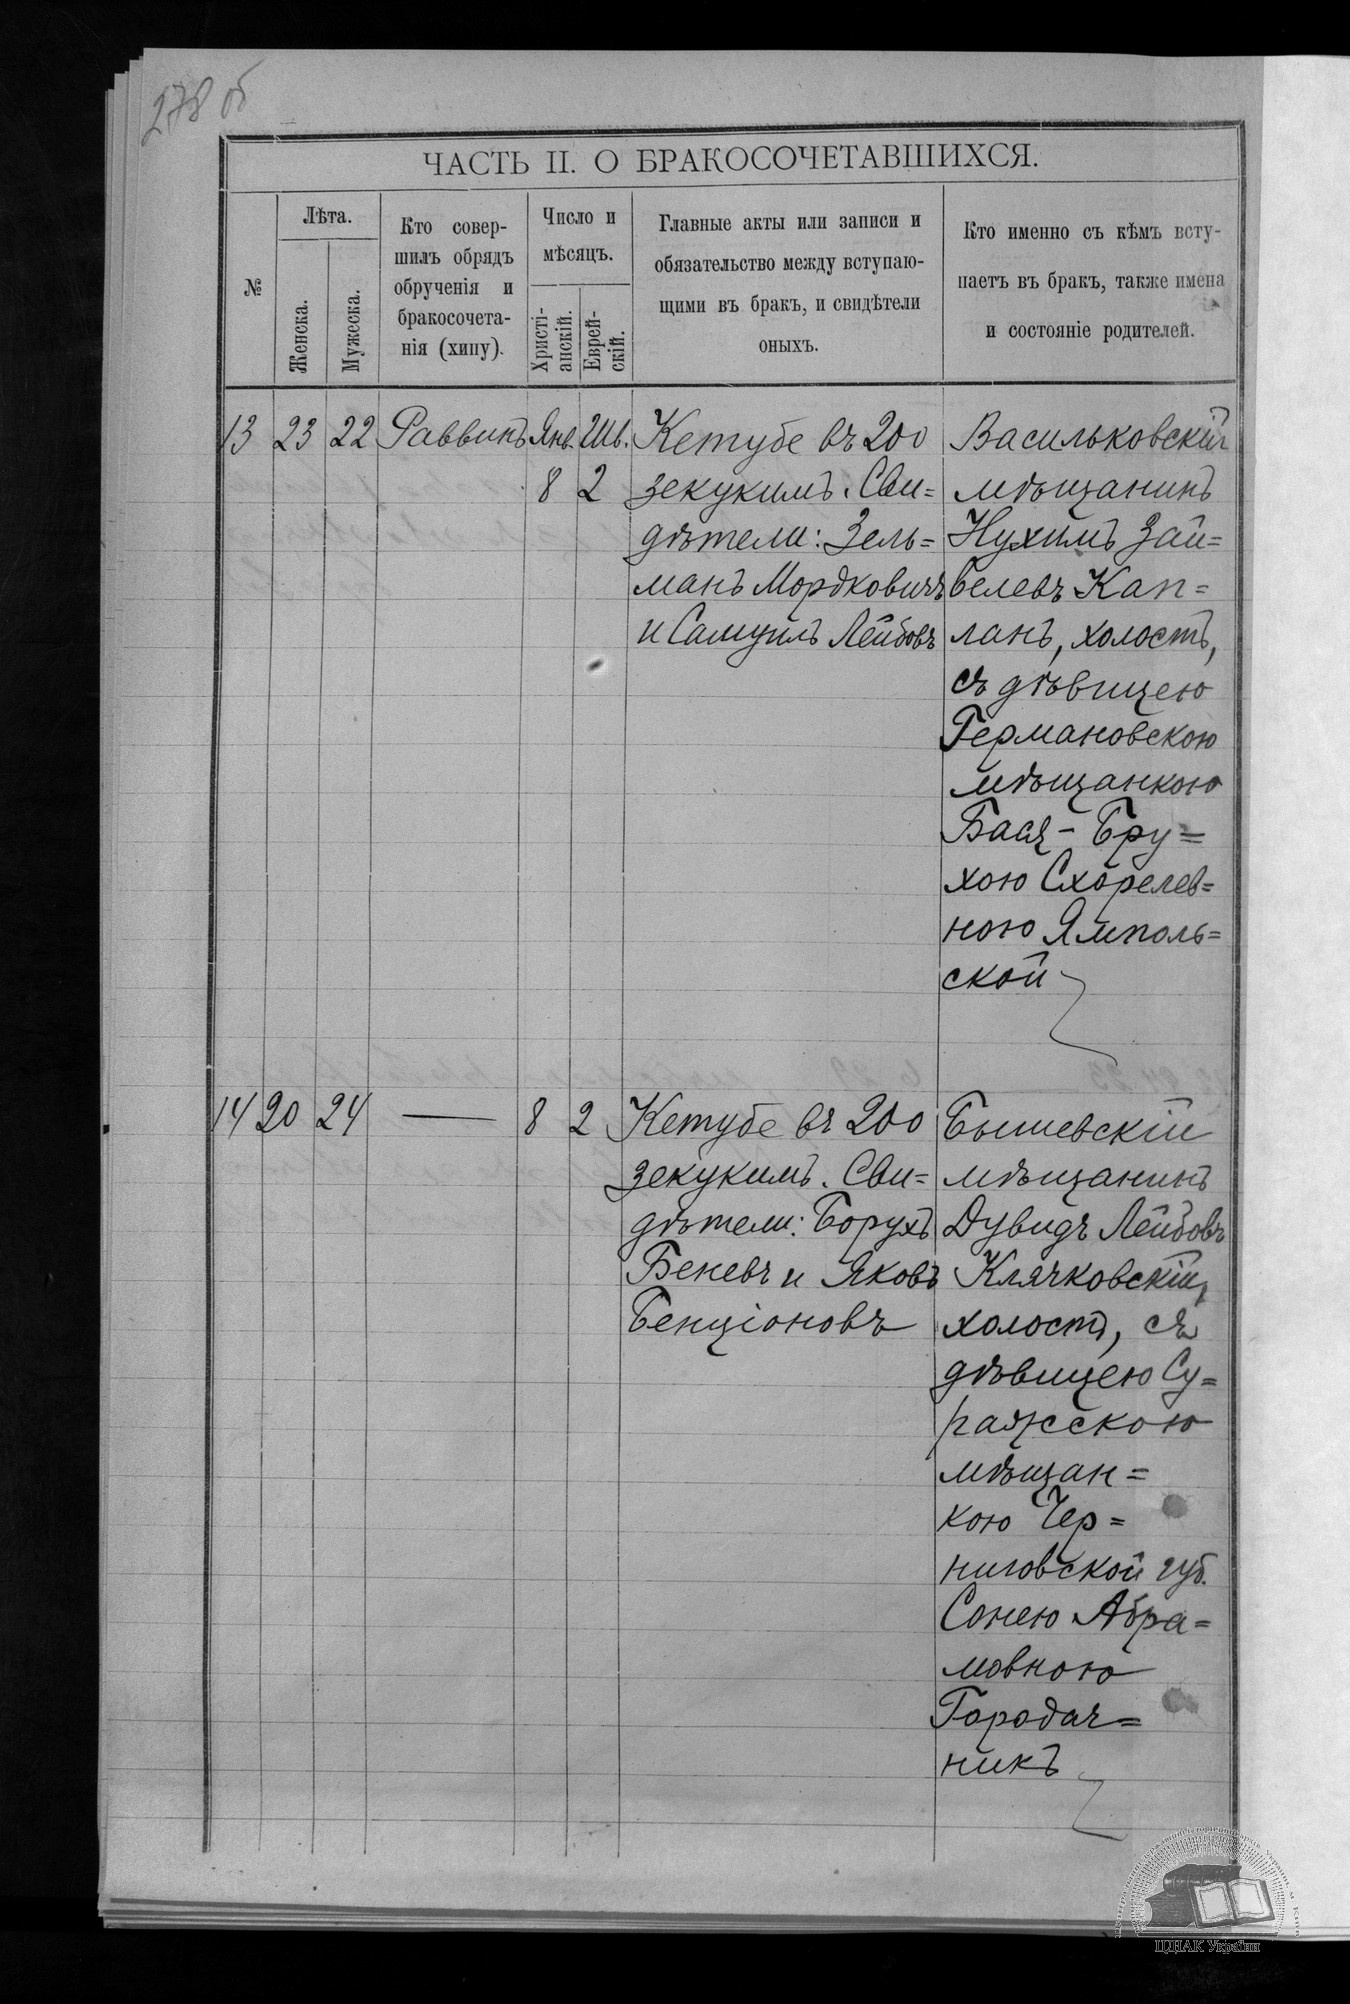 278 об
ЧАСТЬ II. О БРАКОСОЧЕТАВШИХСЯ.
№
Лѣта.
Женска.
Мужеска.
Кто совер-
шилъ обрядъ
обрученія и
бракосочета-
нія (хипу).
Число и
мѣсяцъ.
Христі-
анскій.
Еврей-
скій.
Главные акты или записи и
обязательство между вступаю-
щими въ бракъ, и свидѣтели
оныхъ.
Кто именно съ кѣмъ всту-
паетъ въ бракъ, также имена
и состояніе родителей.
13 23 22 Раввинъ Янв. Шв.
8 2
Кетубе въ 200
зекукимъ. Сви=
дѣтели: Зель=
манъ Мордковичъ
и Самуилъ Лейбовъ
Васильковскій
мѣщанинъ
Нухимъ Зай=
велевъ Кап=
ланъ, холостъ,
съ дѣвицею
Германовскою
мѣщанкою
Бася-Бру=
хою Схорелев=
ною Ямполь=
ской
14 20 24 — 8 2
Кетубе въ 200
зекукимъ. Сви=
дѣтели: Борухъ
Беневъ и Яковъ
Бенціоновъ
Бышевскій
мѣщанинъ
Дувидъ Лейбовъ
Клячковскій,
холостъ, съ
дѣвицею Су=
ражскою
мѣщан=
кою Чер=
ниговской губ.
Сонею Абра=
мовною
Городач=
никъ
ЦДІАК України